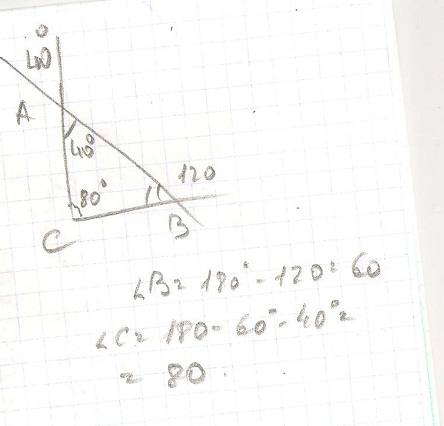 40°
A
40°
80°
120
C
B
∠B = 180° - 120 = 60
∠C = 180 - 60° - 40° =
= 80.